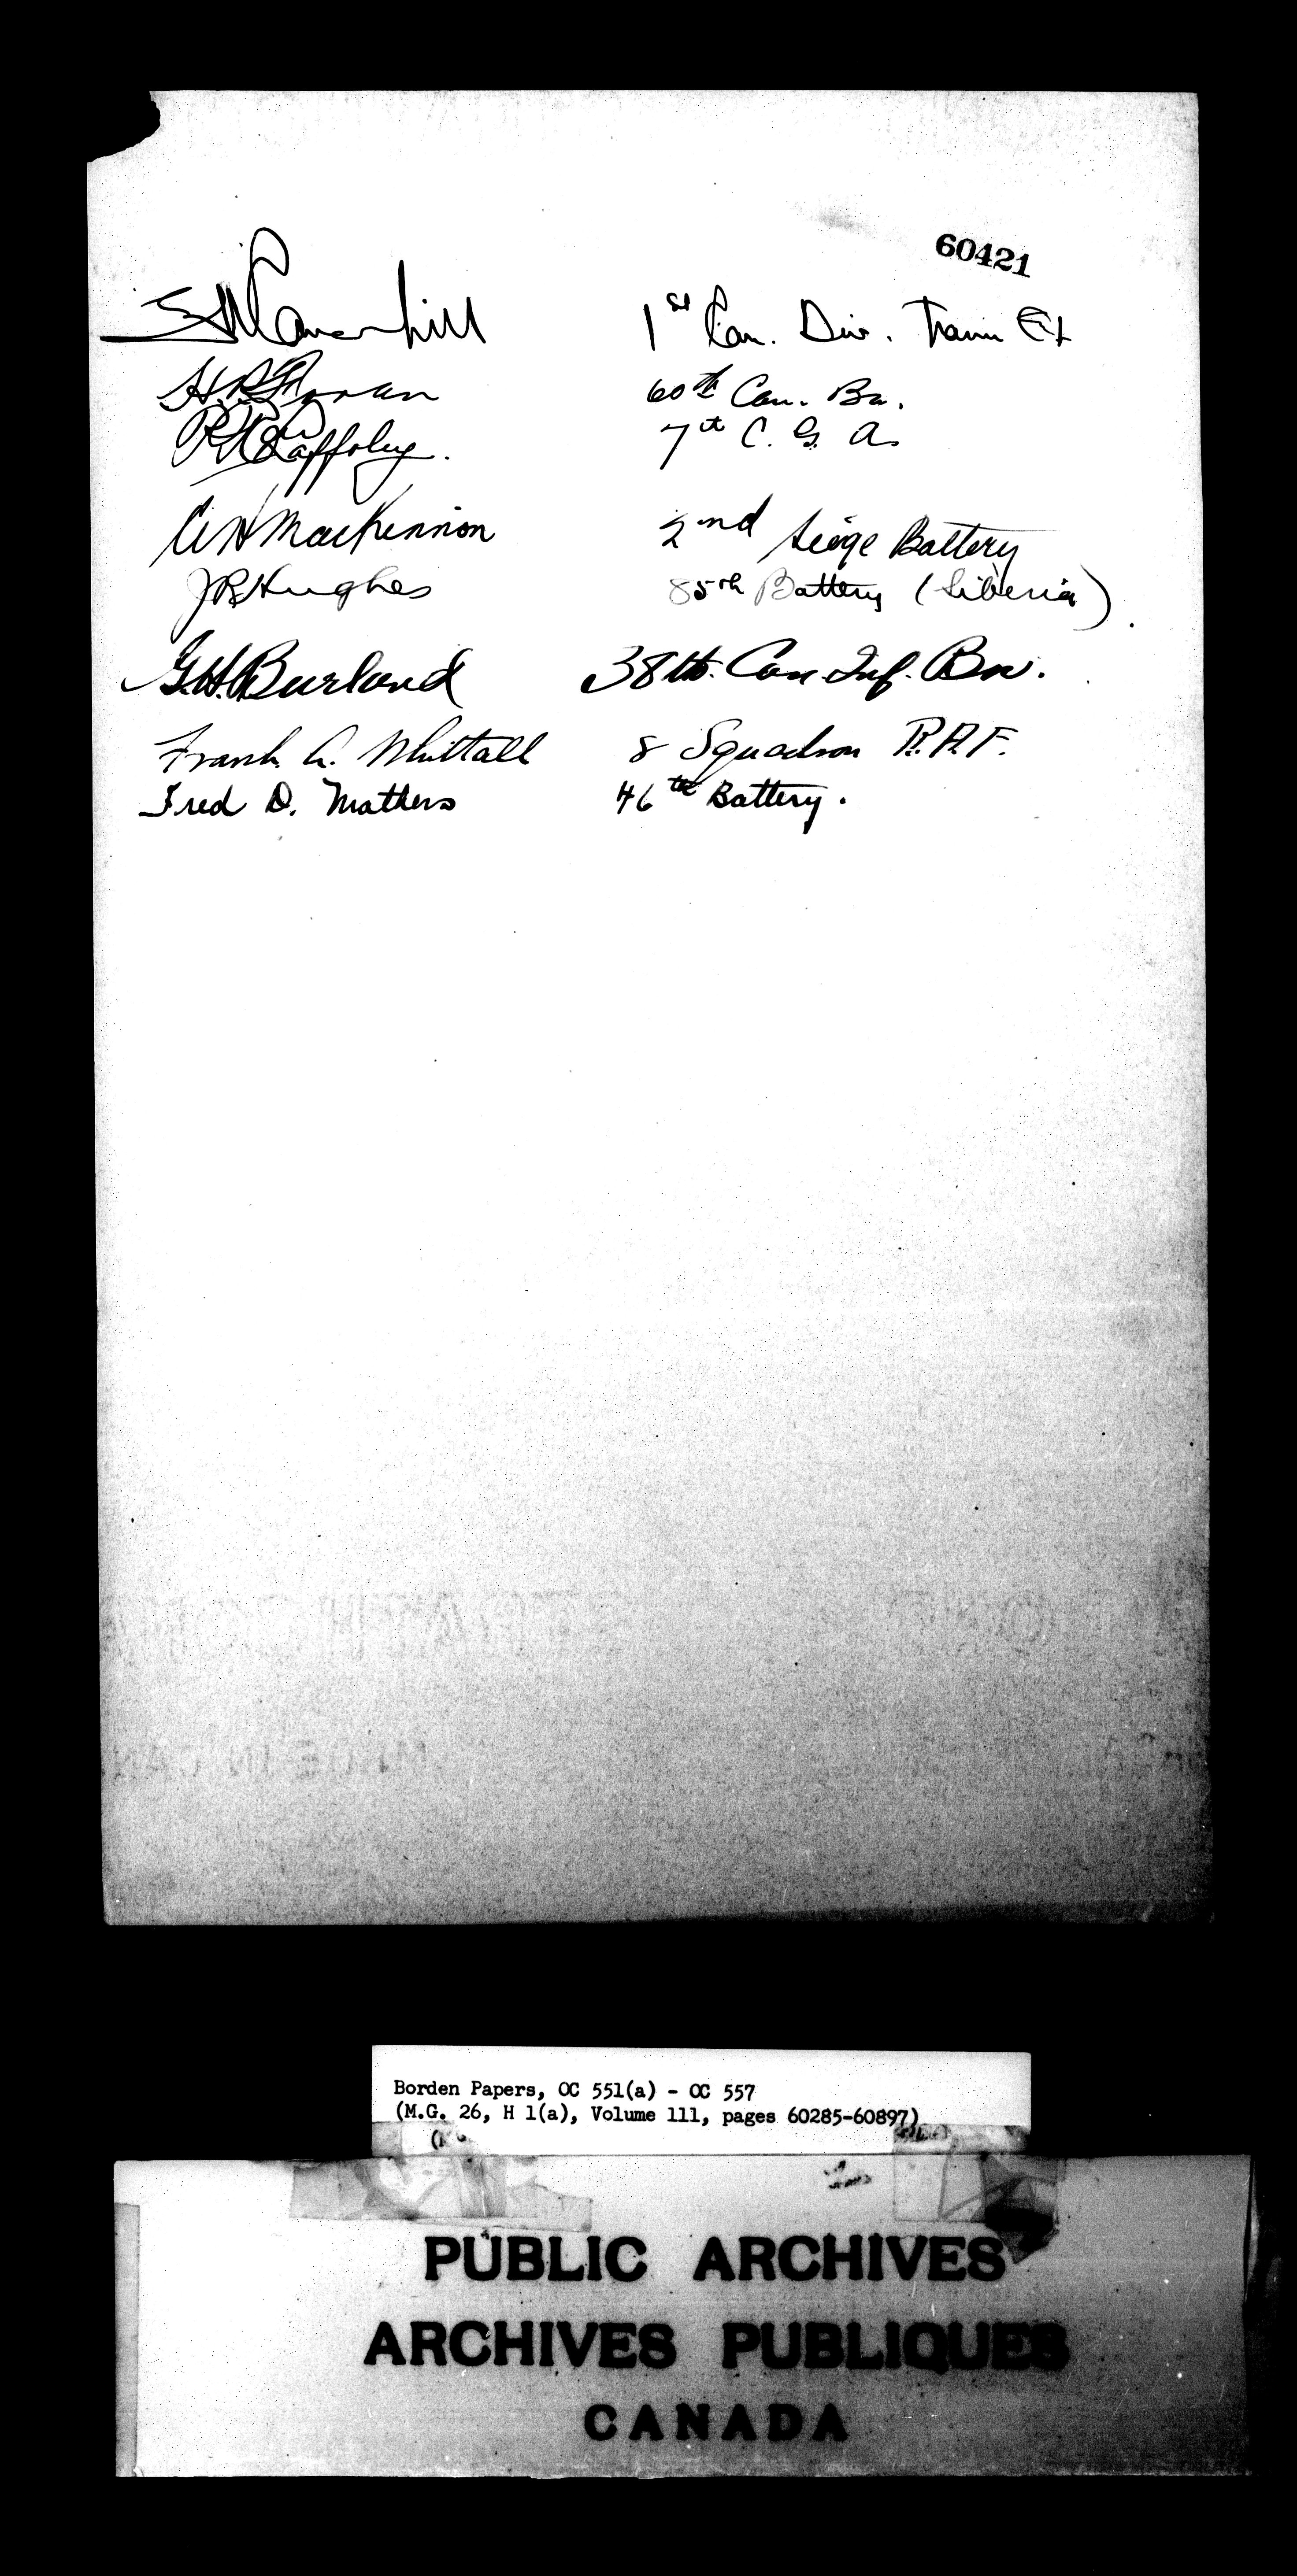 60421
1st Can. Div. Train
60th Can. Bn.
7th C. G. A.
A H MacKinnon 2nd Seige Battery
J R Hughes 85th Battery (Siberia).
G.H. Burland 38th. Can. Inf. Bn.
Frank A. Whittall 8 Squadron R.A.F.
Fred D. Mathers 46th Battery.
MADE IN CAN
Borden Papers, OC 551(a) - OC 557
(M.G. 26, H 1(a), Volume 111, pages 60285-60897)
PUBLIC ARCHIVES
ARCHIVES PUBLIQUES
CANADA